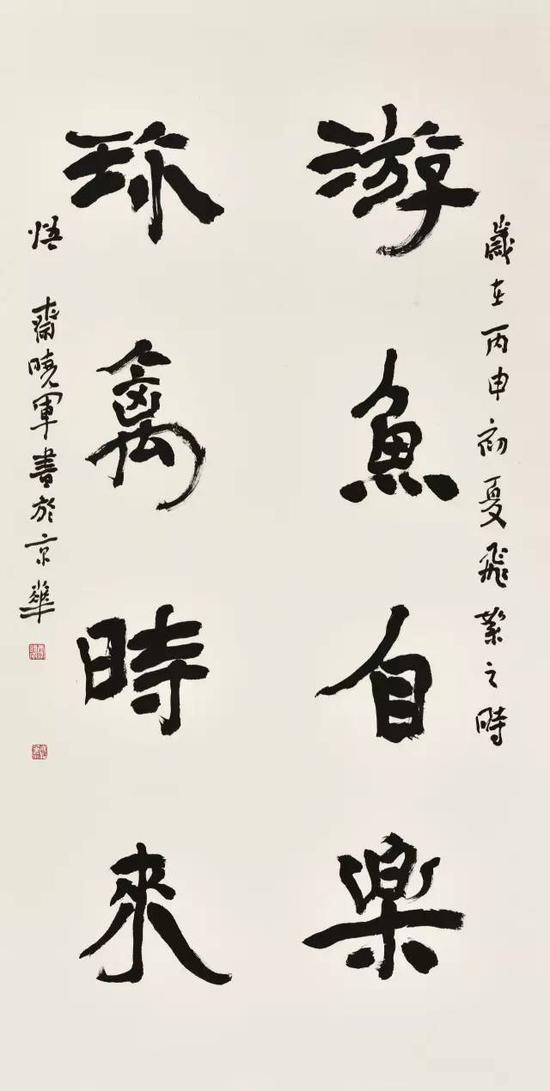 歲在丙申初夏飛絮之時
游魚自樂
珎禽時來
悟齋曉軍書於京華